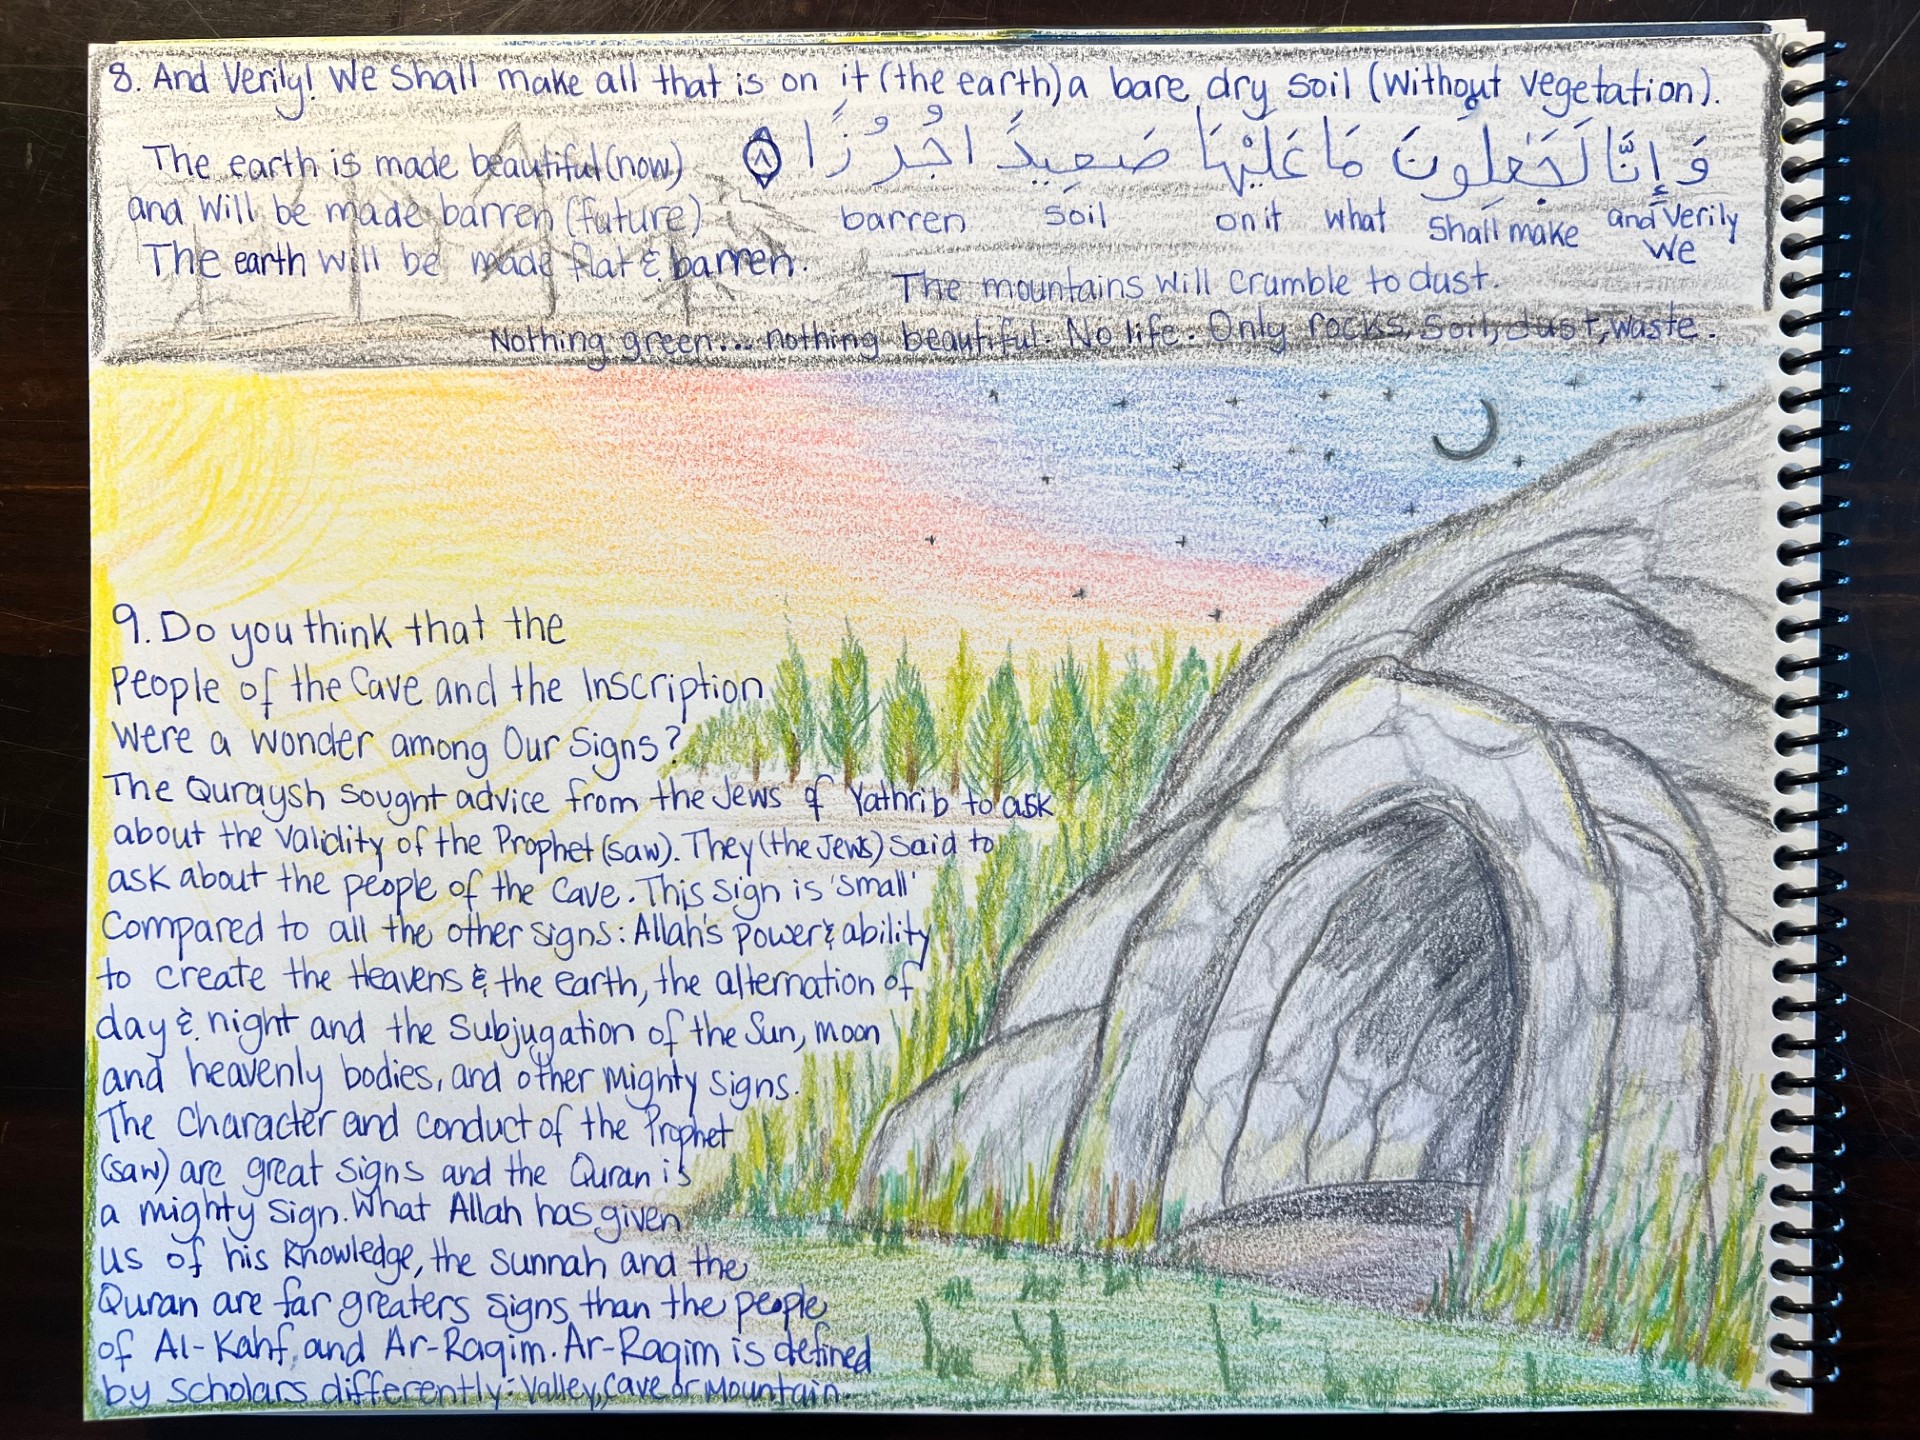 8. And Verily! We Shall make all that is on it (the earth) a bare dry soil (without vegetation).
وَإِنَّا لَجَٰعِلُونَ مَا عَلَيْهَا صَعِيدًا جُرُزًا ٨
The earth is made beautiful (now)
and will be made barren (future)
The earth will be made flat & barren.
barren soil on it what Shall make and Verily
We
The mountains will crumble to dust.
Nothing green... nothing beautiful. No life. Only rocks, soil, dust, waste.
9. Do you think that the
People of the Cave and the Inscription
were a wonder among Our Signs?
The Quraysh sought advice from the Jews of Yathrib to ask
about the validity of the Prophet (saw). They (the Jews) said to
ask about the people of the Cave. This sign is 'small'
Compared to all the other signs: Allah's power & ability
to create the Heavens & the earth, the alternation of
day & night and the subjugation of the Sun, moon
and heavenly bodies, and other mighty signs.
The Character and conduct of the Prophet
(saw) are great signs and the Quran is
a mighty sign. What Allah has given
us of his knowledge, the sunnah and the
Quran are far greaters signs than the people
of Al-Kahf and Ar-Raqim. Ar-Raqim is defined
by scholars differently: Valley, Cave or Mountain.